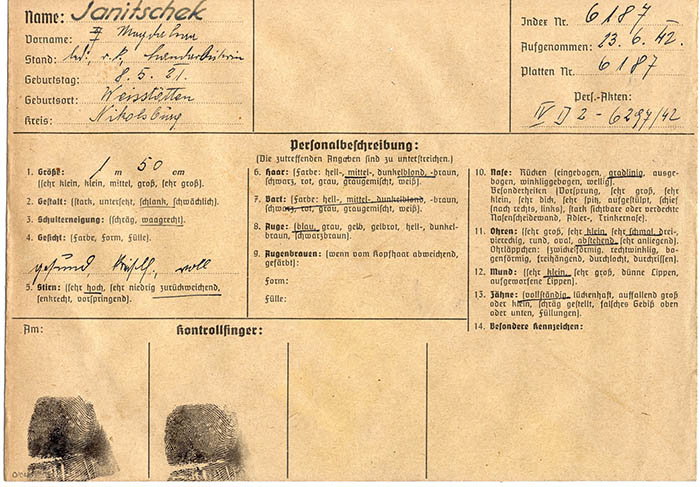 Name: Janitschek
Vorname: Magdalena
Stand: led., r.k.,
Geburtstag: 8.5.21.
Geburtsort: Weisstätten
Kreis: Nikolsburg
Index Nr. 6187
Aufgenommen: 23.6.42.
Platten Nr. 6187
Pers.-Akten:
IV D 2 - 6297/42
Personalbeschreibung:
(Die zutreffenden Angaben sind zu unterstreichen.)
1. Größe: 1 m 50 cm
(sehr klein, klein, mittel, groß, sehr groß).
2. Gestalt: (stark, untersetzt, schlank, schwächlich).
3. Schulterneigung: (schräg, waagrecht).
4. Gesicht: (Farbe, Form, Fülle).
gesund voll
5. Stirn: (sehr hoch, sehr niedrig zurückweichend,
senkrecht, vorspringend).
6. Haar: (Farbe: hell-, mittel-, dunkelblond, -braun,
schwarz, rot, grau, graugemischt, weiß).
7. Bart: (Farbe: hell-, mittel-, dunkelblond, -braun,
schwarz, rot, grau, graugemischt, weiß).
8. Auge: (blau, grau, gelb, gelbrot, hell-, dunkel-
braun, schwarzbraun).
9. Augenbrauen: (wenn vom Kopfhaar abweichend,
gefärbt):
Form:
Fülle:
10. Nase: Rücken (eingebogen, gradlinig, ausge-
bogen, winkliggebogen, wellig).
Besonderheiten (Vorsprung, sehr groß, sehr
klein, sehr dick, sehr spitz, aufgestülpt, schief
(nach rechts, links), stark sichtbare oder verdeckte
Nasenscheidewand, Adler-, Trinkernase).
11. Ohren: (sehr groß, sehr klein, sehr schmal, drei-,
viereckig, rund, oval, abstehend, sehr anliegend).
Ohrläppchen: (zwickelförmig, rechtwinklig, bo-
genförmig, freihängend, durchlocht, durchrissen).
12. Mund: (sehr klein, sehr groß, dünne Lippen,
aufgeworfene Lippen).
13. Zähne: (vollständig, lückenhaft, auffallend groß
oder klein, schräg gestellt, falsches Gebiß oben
oder unten, Füllungen).
14. Besondere Kennzeichen:
Am:
Kontrollfinger: